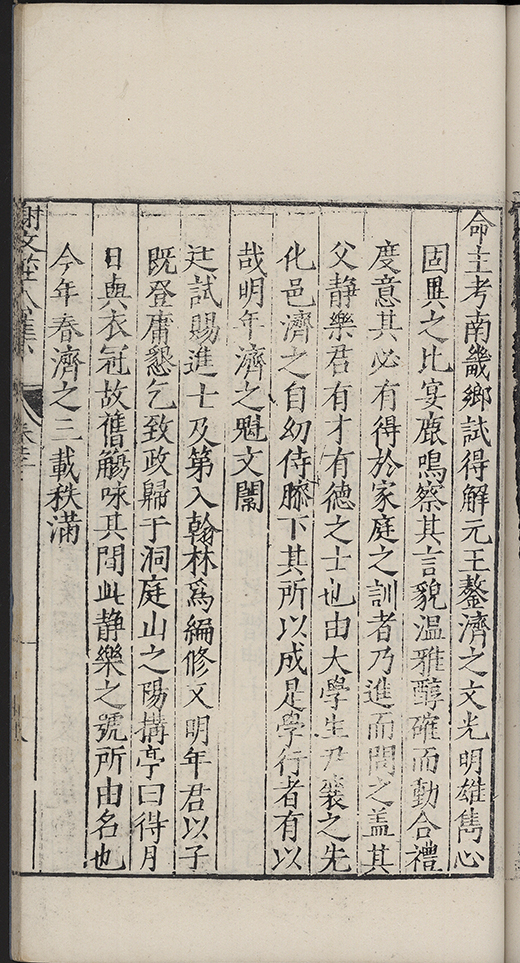 命主考南畿鄉試得解元王鏊濟之文光明雄雋心
固異之比宴鹿鳴察其言貌溫雅醇確而動合禮
度意其必有得於家庭之訓者乃進而問之盖其
父静樂君有才有德之士也由大學生尹襄之先
化邑濟之自幼侍膝下其所以成是學行者有以
哉明年濟之魁文闈
廷試賜進士及第入翰林爲編修又明年君以子
既登庸懇乞致政歸于洞庭山之陽搆亭曰得月
日與衣冠故舊觴咏其間此静樂之號所由名也
今年春濟之三載秩滿
謝文莊公集